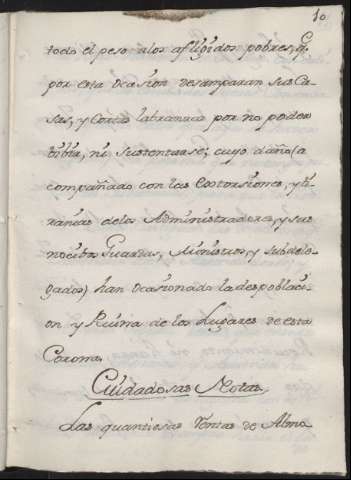 10
todo el peso alos afligidos pobres, q̃.
por esta ocasion desamparan sus Ca-
sas, y Cortas labranzas por no poder
vibir, ni sustentarse; cuyo daño (a
compañado con las Extorsiones, y ti-
ranias delos Administradores, y sus
nocibos Guardas, Ministros, y subdele-
gados) han ocasionado la despoblaci-
on y Ruina de los Lugares de esta
Corona.
Cuidadosas Notas
Las quantiosas Ventas de Alma